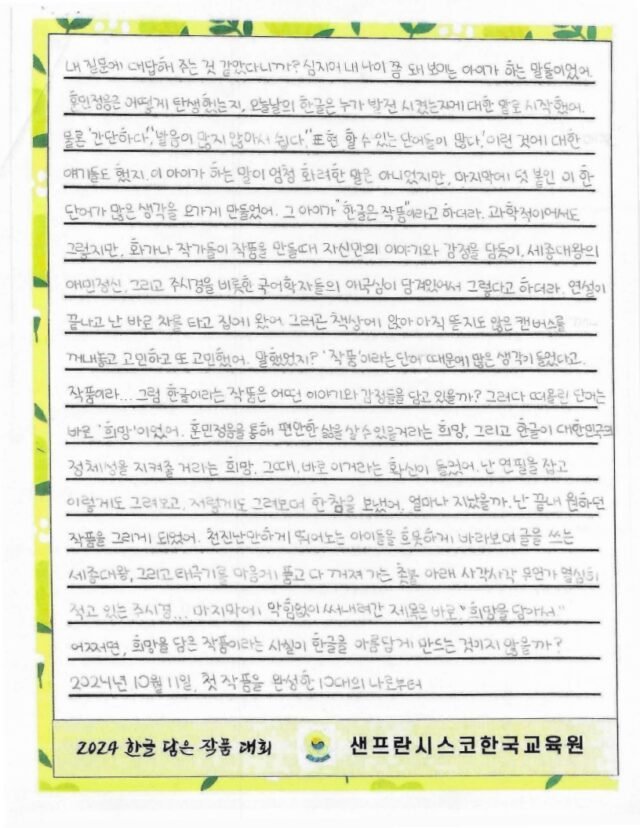 내 질문에 대답해 주는 것 같았다니까? 심지어 내 나이 쯤 돼 보이는 아이가 하는 말들이었어.
훈민정음은 어떻게 탄생했는지, 오늘날의 한글은 누가 발전 시켰는지에 대한 말로 시작했어.
물론 '간단하다', '발음이 많지 않아서 쉽다', '표현 할 수 있는 단어들이 많다,' 이런 것에 대한
얘기들도 했지. 이 아이가 하는 말이 엄청 화려한 말은 아니었지만, 마지막에 덧 붙인 이 한
단어가 많은 생각을 오가게 만들었어. 그 아이가 "한글은 작품"이라고 하더라. 과학적이어서도
그렇지만, 화가나 작가들이 작품을 만들때 자신만의 이야기와 감정을 담듯이, 세종대왕의
애민정신, 그리고 주시경을 비롯한 국어학자들의 애국심이 담겨있어서 그렇다고 하더라. 연설이
끝나고 난 바로 차를 타고 집에 왔어. 그러곤 책상에 앉아 아직 뜯지도 않은 캔버스를
꺼내놓고 고민하고 또 고민했어. 말했었지? '작품'이라는 단어 때문에 많은 생각이 들었다고.
작품이라... 그럼 한글이라는 작품은 어떤 이야기와 감정들을 담고 있을까? 그러다 떠올린 단어는
바로 '희망'이었어. 훈민정음을 통해 편안한 삶을 살 수 있을거라는 희망, 그리고 한글이 대한민국의
정체성을 지켜줄 거라는 희망. 그때, 바로 이거라는 확신이 들었어. 난 연필을 잡고
이렇게도 그려보고, 저렇게도 그려보며 한참을 보냈어. 얼마나 지났을까. 난 끝내 원하던
작품을 그리게 되었어. 천진난만하게 뛰어노는 아이들을 흐뭇하게 바라보며 글을 쓰는
세종대왕, 그리고 태극기를 마음에 품고 다 꺼져 가는 촛불 아래 사각사각 무언가 열심히
적고 있는 주시경... 마지막에 막힘없이 써내려간 제목은 바로, "희망을 담아서"
어쩌면, 희망을 담은 작품이라는 사실이 한글을 아름답게 만드는 것이지 않을까?
2024년 10월 11일, 첫 작품을 완성한 10대의 나로부터
2024 한글 담은 작품 대회 샌프란시스코한국교육원